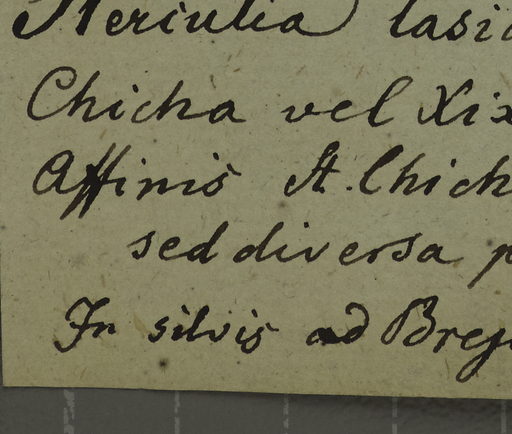 Sterculia lasi
Chicha vel Xix
Affinis St. Chich
sed diversa p
In silvis ad Brej